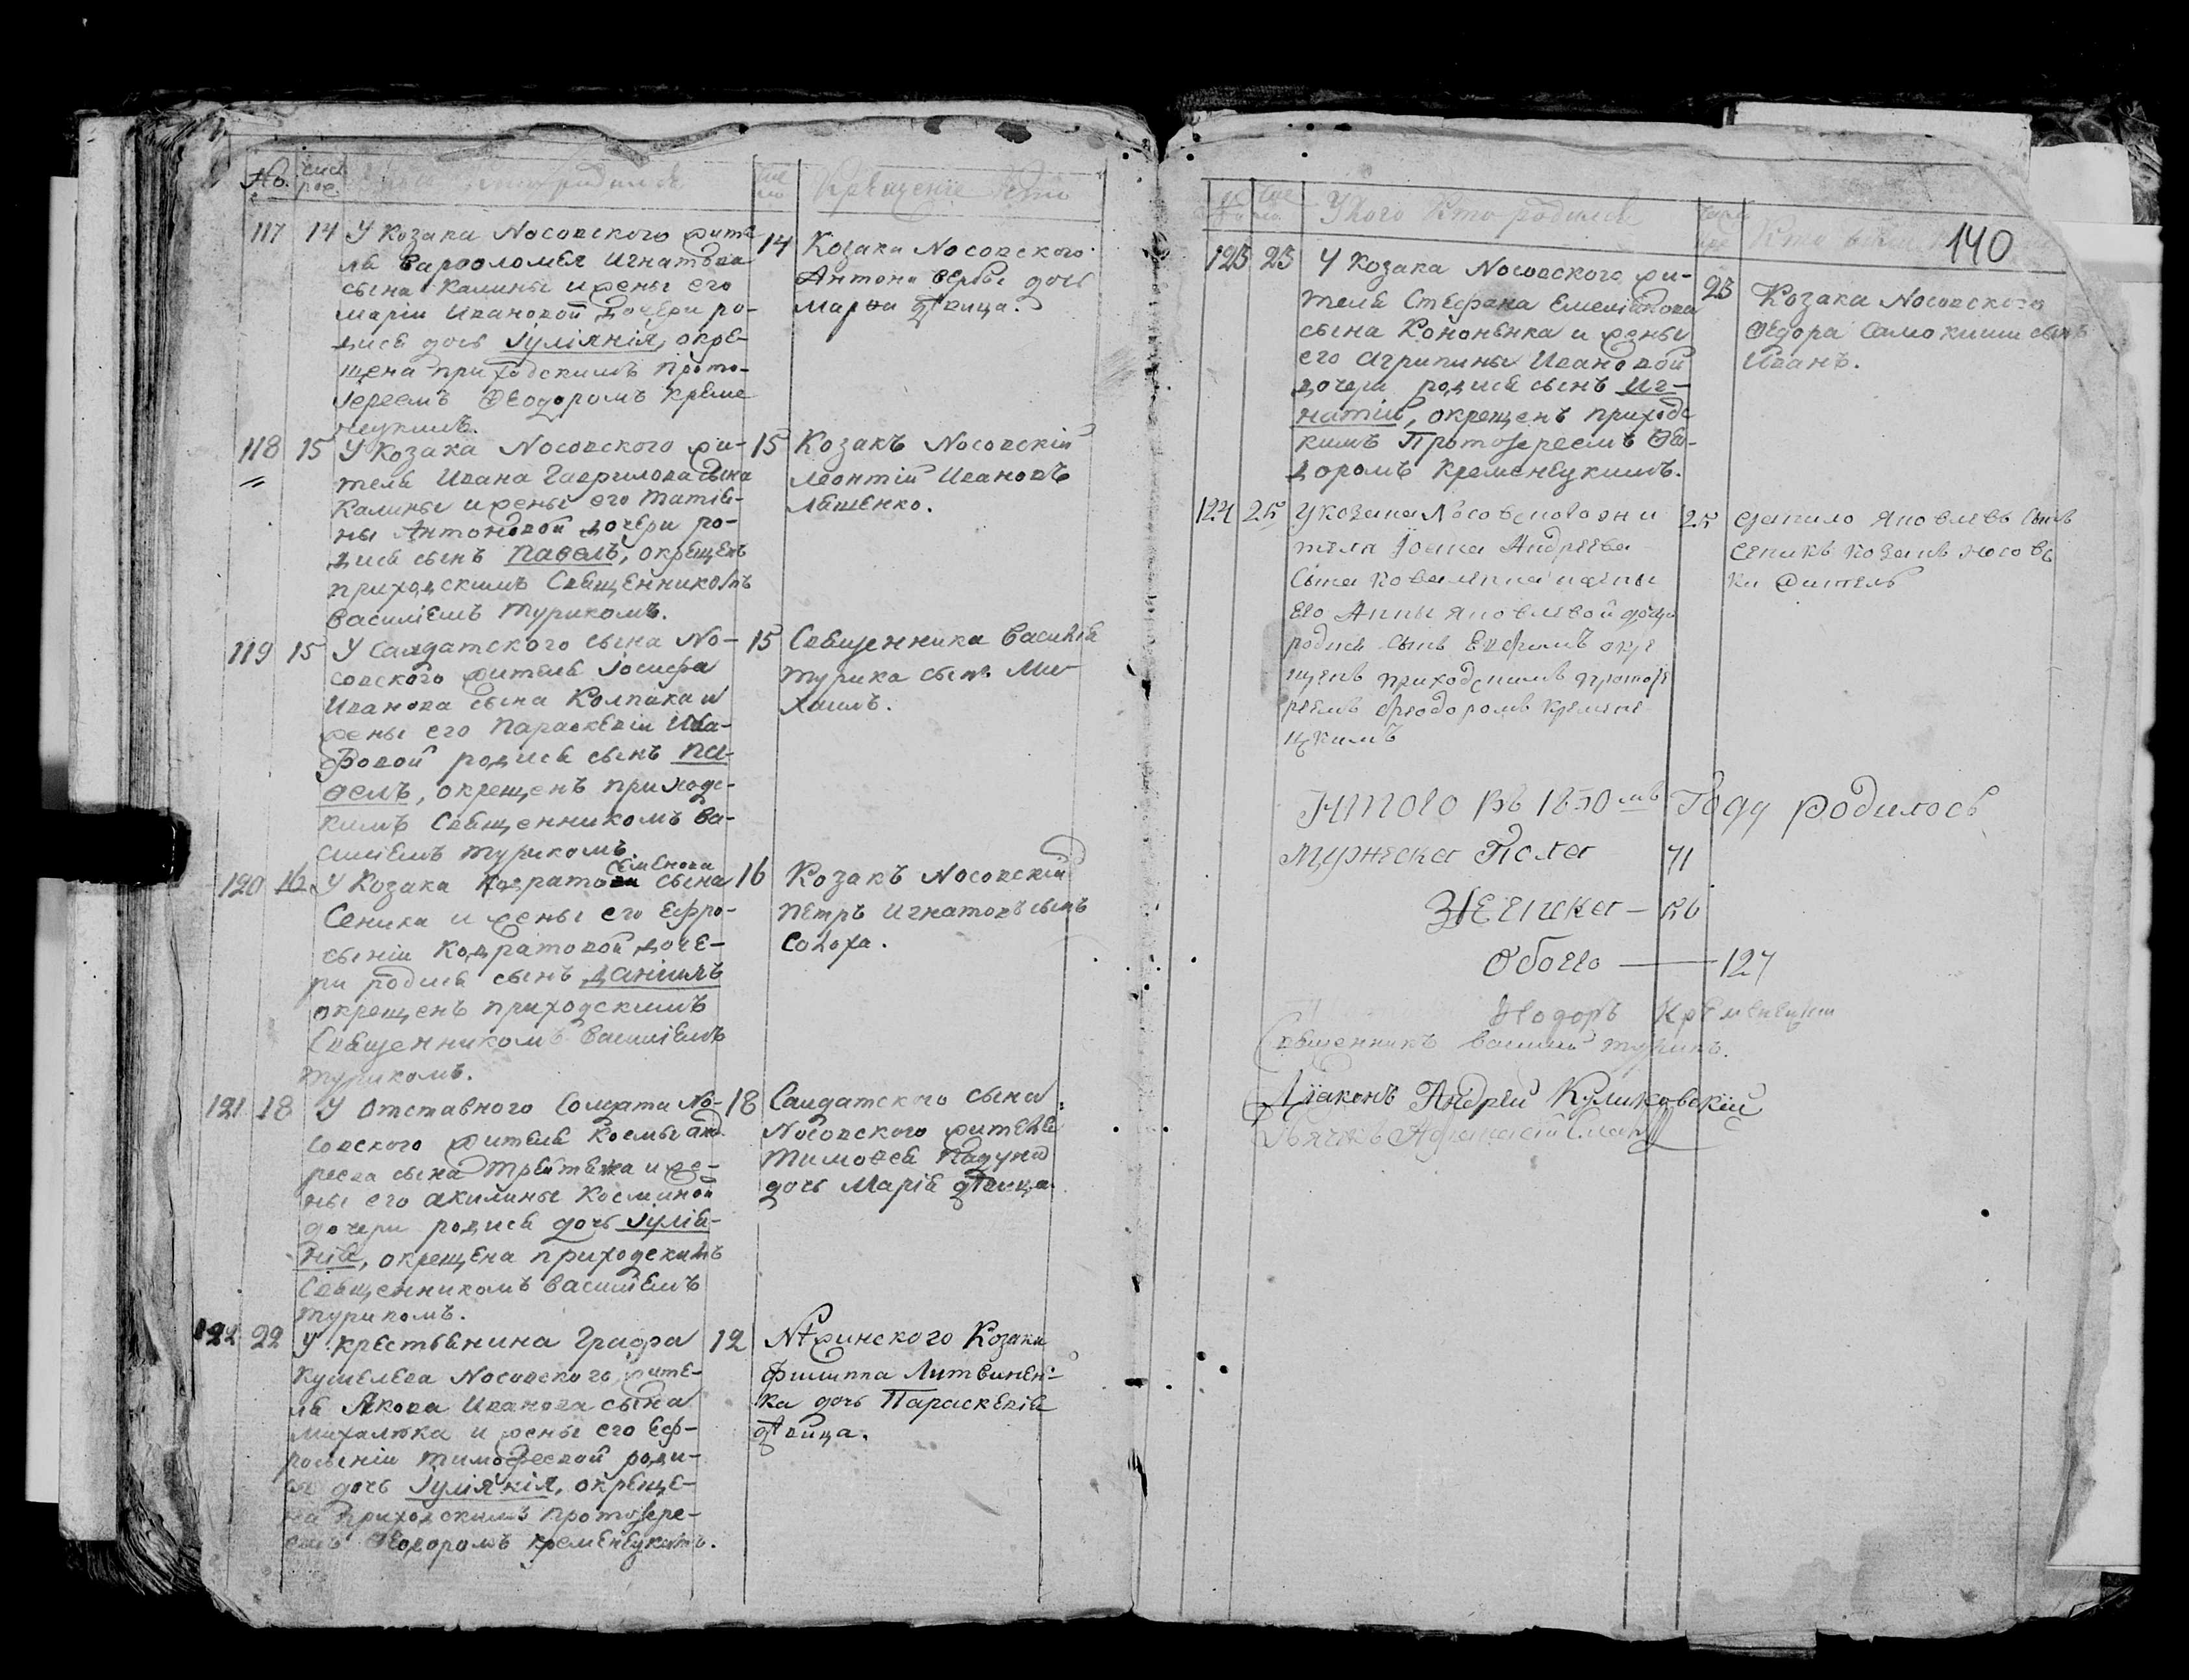 No. числ. рож. родился число Крещенiе
117 14 У Козака Носовского жите-
ля Варфоломея Игнатова
сына Калины и жены его
Марiи Ивановой дочери ро-
дися дочь Iулiянiя, окре-
щена приходскимъ Прото-
iереемъ Ѳеодоромъ Креме
нецкимъ.
14 Козака Носовского
Антона Вербы дочь
Марѳа дѣвица.
118 15 У Козака Носовского жи-
теля Ивана Гаврилова сына
Калины и жены его Татiя-
ны Антоновой дочери ро-
дися сынъ Павелъ, окрещенъ
приходскимъ Священникомъ
Василiемъ Турикомъ.
15 Козакъ Носовскiй
Леонтiй Ивановъ
Ляшенко.
119 15 У Салдатского сына Но-
совского жителя Iосифа
Иванова сына Колпака и
жены его Параскевiи Ива-
новой родися сынъ Па-
велъ, окрещенъ приходс-
кимъ Священникомъ Ва-
силiемъ Турикомъ.
15 Священника Василiя
Турика сынъ Ми-
хаилъ.
120 16 У Козака Кодрата Семенова сына
Сеника и жены его Ефро-
сынiи Кодратовой доче-
ри родися сынъ Данiилъ
окрещенъ приходскимъ
Священникомъ Василiемъ
Турикомъ.
16 Козакъ Носовскiй
Петръ Игнатовъ сынъ
Солоха.
121 18 У Отставного Солдата Но-
совского жителя Космы Анд
реева сына и же-
ны его Акилины Косминой
дочери родися дочь Iулiя-
нiя, окрещена приходскимъ
Священникомъ Василiемъ
Турикомъ.
18 Салдатского сына
Носовского жителя
Тимоѳея Падуна
дочь Марiя дѣвица.
122 22 У крестьянина Графа
Кушелева Носовского жите-
ля Якова Иванова сына
Михалюка и жены его Еф-
росынiи Тимофеевой роди-
ся дочь Iулiянiя, окреще-
на приходскимъ Протоiере-
емъ Ѳеодоромъ Кременецкимъ.
12 Нѣжинского Козака
Филиппа Литвинен-
ка дочь Параскевiя
дѣвица.
140
У кого кто родился
123 23 У Козака Носовского жи-
теля Стефана Емелiянова
сына Кононенка и жены
его Агрипины Ивановой
дочери родися сынъ Иг-
натiй, окрещенъ приходс
кимъ Протоiереемъ Ѳео-
доромъ Кременецкимъ.
23 Козака Носовского
Ѳедора Самокиши сынъ
Иванъ.
124 25 У козака Носовского жи
теля Iоана Андреева
Сына Коваленка и жены
Его Анны Яковлевой дочри
родися Сынъ Евфимъ окре
щенъ приходскимъ протоiе
реемъ Феодоромъ Кремене
цкимъ
25 Данило Яковлевъ Сынъ
Сеникъ Козакъ носовс
ки житель
Итого въ 1850мъ Году родилось
Мужеска Пола 71
Женска — 56
Обоего — 127
Ѳеодоръ Кременецкiй
Священникъ Василiй Турикъ.
Дiаконъ Андрей Куликовскiй
Дьячекъ Афанасiй